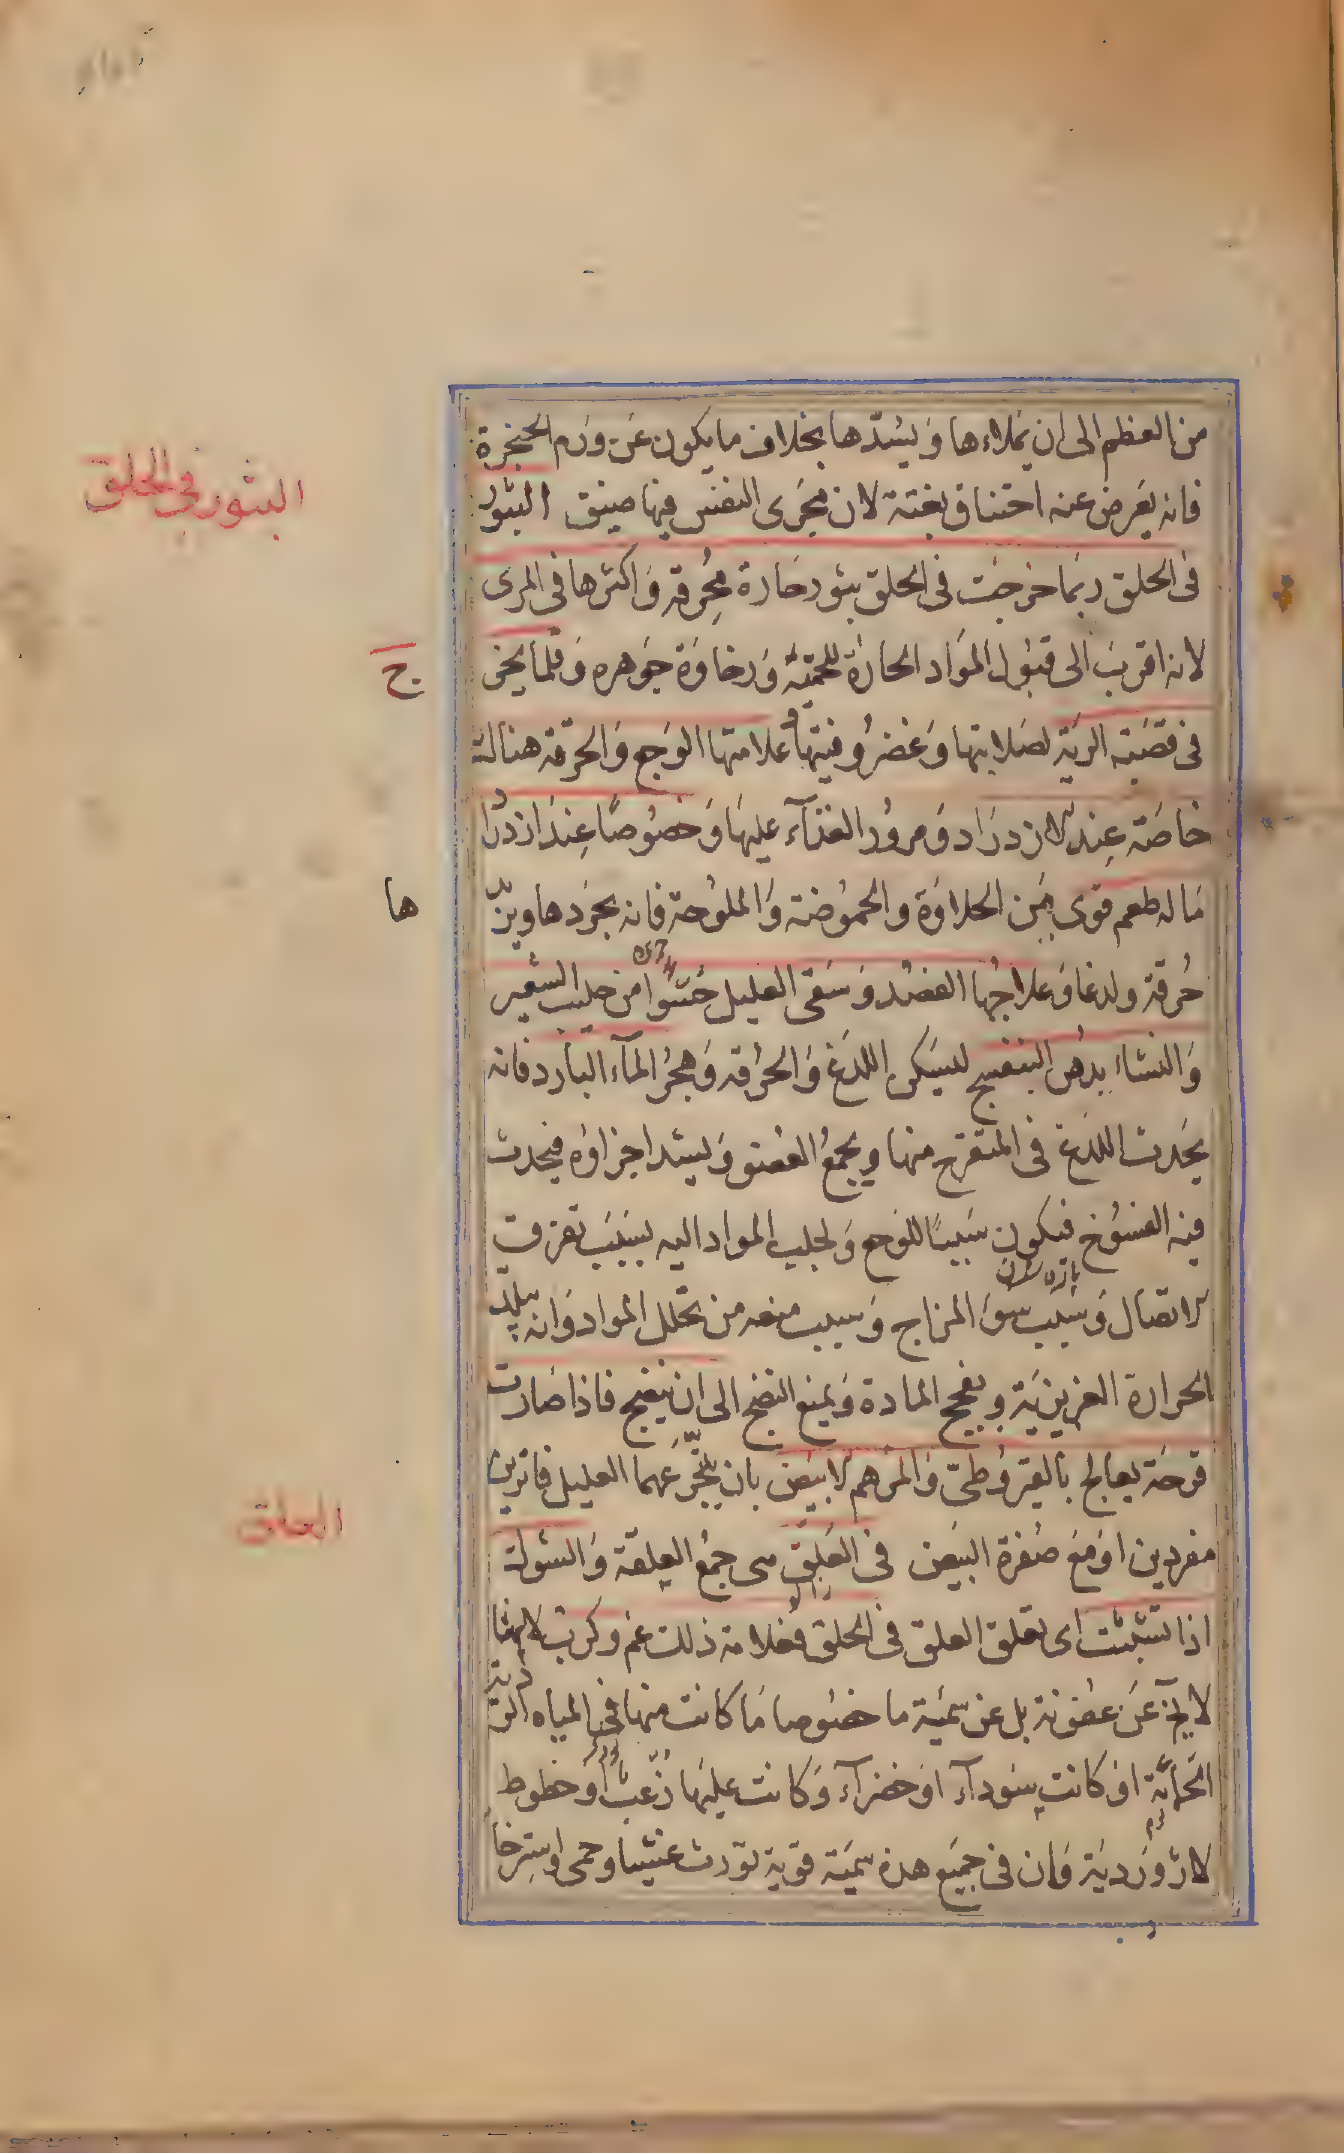 من العظم الى ان يملاءها و يسدّها بخلاف ما يكون عن ورم الحنجرة
فانه يعرض عنه اختناق بغتة لان مجرى النفس فيها ضيق البثور
البثور في الحلق
فى الحلق ربما خرجت فى الحلق بثور حارة محرقة و اكثرها فى المرى
لانه اقرب الى قبول المواد الحارة للحميّة و رخاوة جوهره و قلما يخر
ج
فى قصبة الرية لصلابتها و غضروفيتها و علامتها الوجع و الحرقة هنالك
خاصة عند الازدراد و مرور الغذآء عليها و خصوصًا عند ازدرا
ما له طعم قوى من الحلاوة و الحموضة و الملوحة فانه يجردها ويز
ها
حرقة ولدغا و علاجها الفصد و سقى العليل حسوا من حليب الشعير
و النشاء بدهن البنفسج ليسكن اللدغ و الحرقة و هجر المآء البارد فانه
يحدث اللدغ فى المتقرح منها و يجمع العضو و يشد اجزاؤه فيحدث
فيه الفسوخ فيكون سببًا للوجع و لجلب المواد اليه بسبب تفرق
الاتصال و بسبب سوء المزاج و بسبب منعه من تحلل المواد و انه يبلد
الحرارة الغريزية و يفجج المادة و يمنع النضج الى ان ينضج فاذا صارت
قرحة يعالج بالقيروطى و المرهم الابيض بان يتجرّعهما العليل فاترين
مفردين او مع صفرة البيض فى العلق هى جمع العلقة و الشوك
العلق
اذا تشبثت اى تعلق العلق فى الحلق فعلامة ذلك غم و كرب لانها
لا يخ عن عفونة بل عن سمية ما خصوصا ما كانت منها فى المياه الردية
الحمائية او كانت سودآء او خضرآء و كانت عليها زغب او خطوط
لازوردية و ان فى جميع هذه سمية قوية تورث غشيا و حمى و استرخا